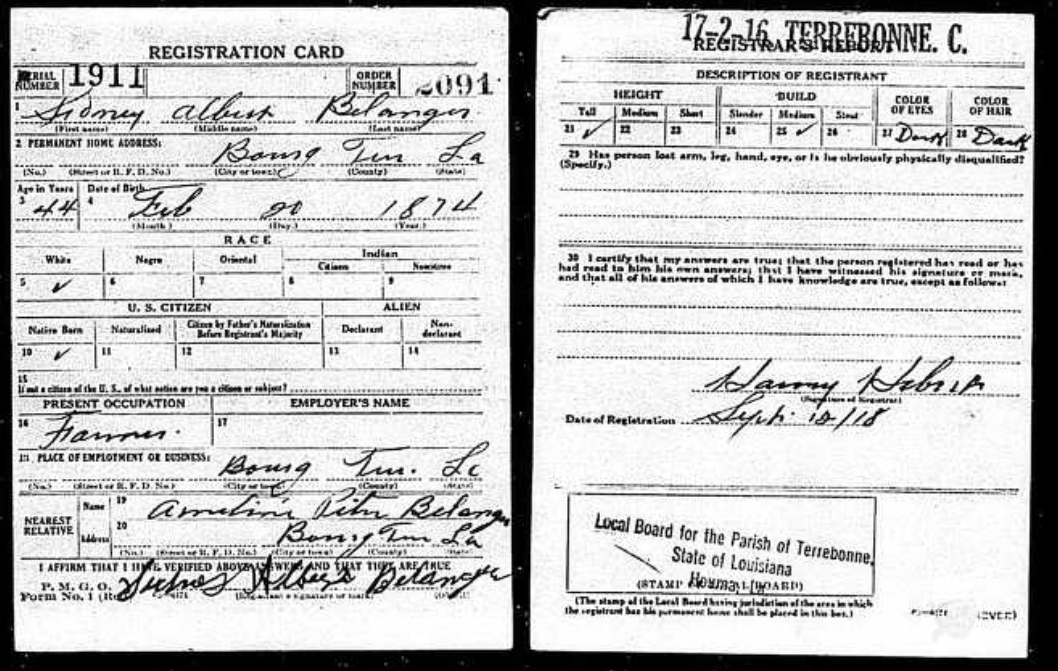 REGISTRATION CARD
SERIAL NUMBER 1911 ORDER NUMBER 2091
1 Sidney Albert Belanger
(First name) (Middle name) (Last name)
2 PERMANENT HOME ADDRESS:
Bourg Terr La
(No.) (Street or R. F. D. No.) (City or town) (County) (State)
Age in Years Date of Birth
3 44 4 Feb 20 1874
(Month) (Day) (Year)
RACE
White Negro Oriental Indian
Citizen Noncitizen
5 ✓ 6 7 8 9
U. S. CITIZEN ALIEN
Native Born Naturalized Citizen by Father's Naturalization Before Registrant's Majority Declarant Non-declarant
10 ✓ 11 12 13 14
15
If not a citizen of the U. S., of what nation are you a citizen or subject?
PRESENT OCCUPATION EMPLOYER'S NAME
16 Farmer. 17
18 PLACE OF EMPLOYMENT OR BUSINESS:
Bourg Terr. La
(No.) (Street or R. F. D. No.) (City or town) (County) (State)
NEAREST RELATIVE Name 19 Belanger
Address 20 Bourg Terr La
(No.) (Street or R. F. D. No.) (City or town) (County) (State)
I AFFIRM THAT I HAVE VERIFIED ABOVE ANSWERS AND THAT THEY ARE TRUE
P. M. G. O.
Form No. 1 Sidney Albert Belanger
(Registrant's signature or mark)
17-2-16 TERREBONNE. C.
REGISTRAR'S REPORT
DESCRIPTION OF REGISTRANT
HEIGHT BUILD COLOR OF EYES COLOR OF HAIR
Tall Medium Short Slender Medium Stout
21 ✓ 22 23 24 25 ✓ 26 27 Dark 28 Dark
29 Has person lost arm, leg, hand, eye, or is he obviously physically disqualified?
(Specify.)
30 I certify that my answers are true; that the person registered has read or has
had read to him his own answers; that I have witnessed his signature or mark,
and that all of his answers of which I have knowledge are true, except as follows:
(Signature of Registrar)
Date of Registration Sept. 12/18
Local Board for the Parish of Terrebonne,
State of Louisiana
Houma, La
(STAMP OF LOCAL BOARD)
(The stamp of the Local Board having jurisdiction of the area in which
the registrant has his permanent home shall be placed in this box.)
(OVER)